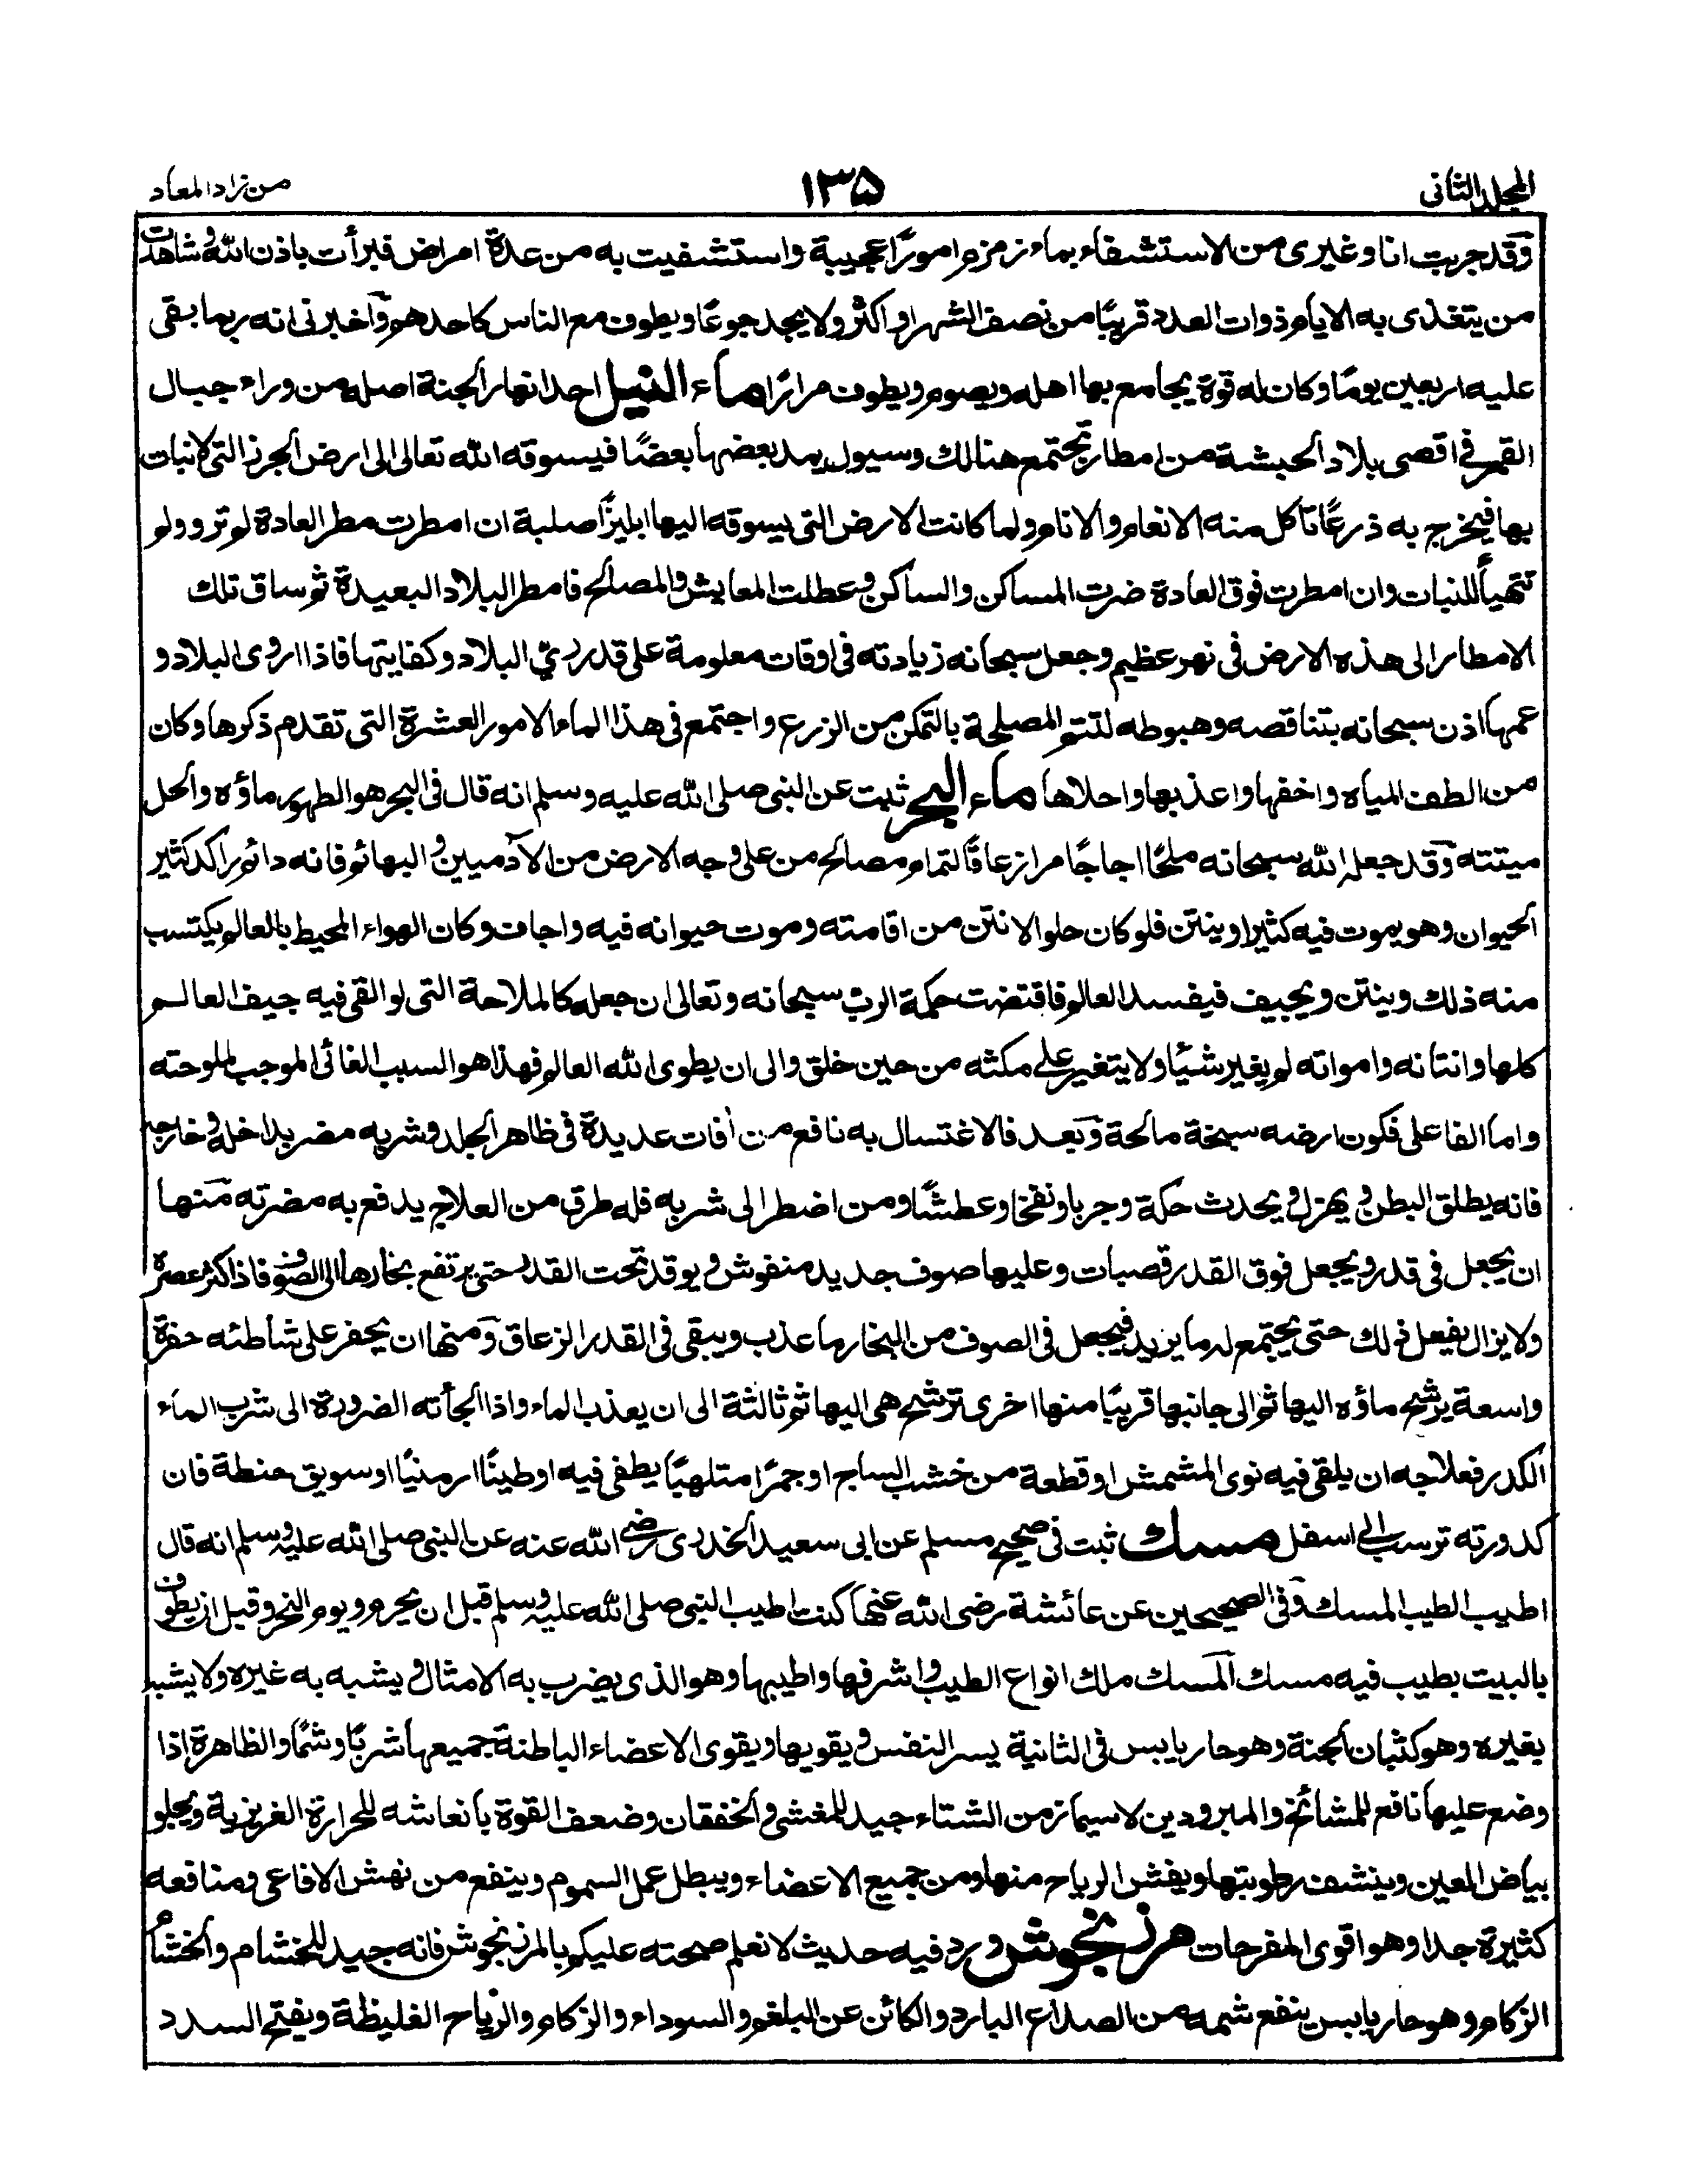 المجلد الثانى
١٣٥
من زاد المعاد
وقد جربت انا وغيرى من الاستشفاء بماء زمزم امورًا عجيبة واستشفيت به من عدة امراض فبرأت باذن الله وشاهدت
من يتغذى به الايام ذوات العدد قريبًا من نصف الشهر او اكثر ولا يجد جوعًا ويطوف مع الناس كاحدهم واخبرنى انه ربما بقى
عليه اربعين يومًا وكان له قوة يجامع بها اهله ويصوم ويطوف مرارًا ماء النيل احد انهار الجنة اصله من وراء جبال
القمر فى اقصى بلاد الحبشة من امطار تجتمع هنالك وسيول يمد بعضها بعضًا فيسوقه الله تعالى الى ارض الجرز التى لا نبات
بها فيخرج به ذرعًا تاكل منه الانعام والانام ولما كانت الارض التى يسوقه اليها ابليزًا صلبة ان امطرت مطر العادة لم ترو ولم
تتهيأ للنبات وان امطرت فوق العادة ضرت المساكن والساكن وعطلت المعايش والمصالح فامطر البلاد البعيدة ثم ساق تلك
الامطار الى هذه الارض فى نهر عظيم وجعل سبحانه زيادته فى اوقات معلومة على قدر ريّ البلاد وكفايتها فاذا اروى البلاد و
عمها اذن سبحانه بتناقصه وهبوطه لتتم المصلحة بالتمكن من الزرع واجتمع فى هذا الماء الامور العشرة التى تقدم ذكرها وكان
من الطف المياه واخفها واعذبها واحلاها ماء البحر ثبت عن النبى صلى الله عليه وسلم انه قال فى البحر هو الطهور ماؤه والحل
ميتته وقد جعله الله سبحانه ملحًا اجاجًا مرا زعاقًا لتمام مصالح من على وجه الارض من الآدميين والبهائم فانه دائم راكد كثير
الحيوان وهو يموت فيه كثيرا وينتن فلو كان حلوا لانتن من اقامته وموت حيوانه فيه واجاف وكان الهواء المحيط بالعالم يكتسب
منه ذلك وينتن ويجيف فيفسد العالم فاقتضت حكمة الرب سبحانه وتعالى ان جعله كالملاحة التى لو القى فيه جيف العالم
كلها وانتانه وامواته لم يغير شيئا ولا يتغير على مكثه من حين خلق والى ان يطوى الله العالم فهذا هو السبب الغائى الموجب لملوحته
واما الفاعلى فكون ارضه سبخة مالحة وبعد فالاغتسال به نافع من افات عديدة فى ظاهر الجلد وشربه مضر بداخله وخارجه
فانه يطلق البطن ويهزل ويحدث حكة وجربا ونفخا وعطشًا ومن اضطر الى شربه فله طرق من العلاج يدفع به مضرته منها
ان يجعل فى قدر ويجعل فوق القدر قصبات وعليها صوف جديد منفوش ويوقد تحت القدر حتى يرتفع بخارها الى الصوف فاذا كثر عصره
ولا يزال يفعل ذلك حتى يجتمع له ما يريد فيجعل فى الصوف من البخار ما عذب ويبقى فى القدر الزعاق ومنها ان يحفر على شاطئه حفرة
واسعة يرشح ماؤه اليها ثم الى جانبها قريبًا منها اخرى ترشح هى اليها ثم ثالثة الى ان يعذب الماء واذا الجأته الضرورة الى شرب الماء
الكدر فعلاجه ان يلقى فيه نوى المشمش او قطعة من خشب الساج او جمرًا متلهبًا يطفى فيه او طينًا ارمنيًا او سويق حنطة فان
كدورته ترسب الى اسفل مسك ثبت فى صحيح مسلم عن ابى سعيد الخدرى رضى الله عنه عن النبى صلى الله عليه وسلم انه قال
اطيب الطيب المسك وفى الصحيحين عن عائشة رضى الله عنها كنت اطيب النبى صلى الله عليه وسلم قبل ان يحرم ويوم النحر وقبل ان يطوف
بالبيت بطيب فيه مسك المسك ملك انواع الطيب واشرفها واطيبها وهو الذى يضرب به الامثال ويشبه به غيره ولا يشبه
بغيره وهو كثبان الجنة وهو حار يابس فى الثانية يسر النفس ويقويها ويقوى الاعضاء الباطنة جميعها شربًا وشمًا والظاهرة اذا
وضع عليها نافع للمشائخ والمبرودين لا سيما زمن الشتاء جيد للغشى والخفقان وضعف القوة بانعاشه للحرارة الغريزية ويجلو
بياض العين وينشف رطوبتها ويفش الرياح منها ومن جميع الاعضاء ويبطل عمل السموم وينفع من نهش الافاعى ومنافعه
كثيرة جدا وهو اقوى المفرحات مرزنجوش ورد فيه حديث لا نعلم صحته عليكم بالمرزنجوش فانه جيد للخشام والخشام
الزكام وهو حار يابس ينفع شمه من الصداع البارد والكائن عن البلغم والسوداء والزكام والرياح الغليظة ويفتح السدد